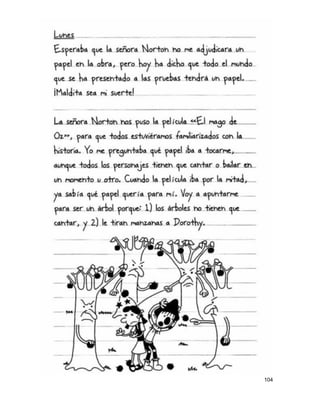 Lunes
Esperaba que la señora Norton no me adjudicara un
papel en la obra, pero hoy ha dicho que todo el mundo
que se ha presentado a las pruebas tendrá un papel.
¡Maldita sea mi suerte!
La señora Norton nos puso la película «El mago de
Oz», para que todos estuviéramos familiarizados con la
historia. Yo me preguntaba qué papel iba a tocarme,
aunque todos los personajes tienen que cantar o bailar en
un momento u otro. Cuando la película iba por la mitad,
ya sabía qué papel quería para mí. Voy a apuntarme
para ser un árbol porque: 1) los árboles no tienen que
cantar, y 2) le tiran manzanas a Dorothy.
104